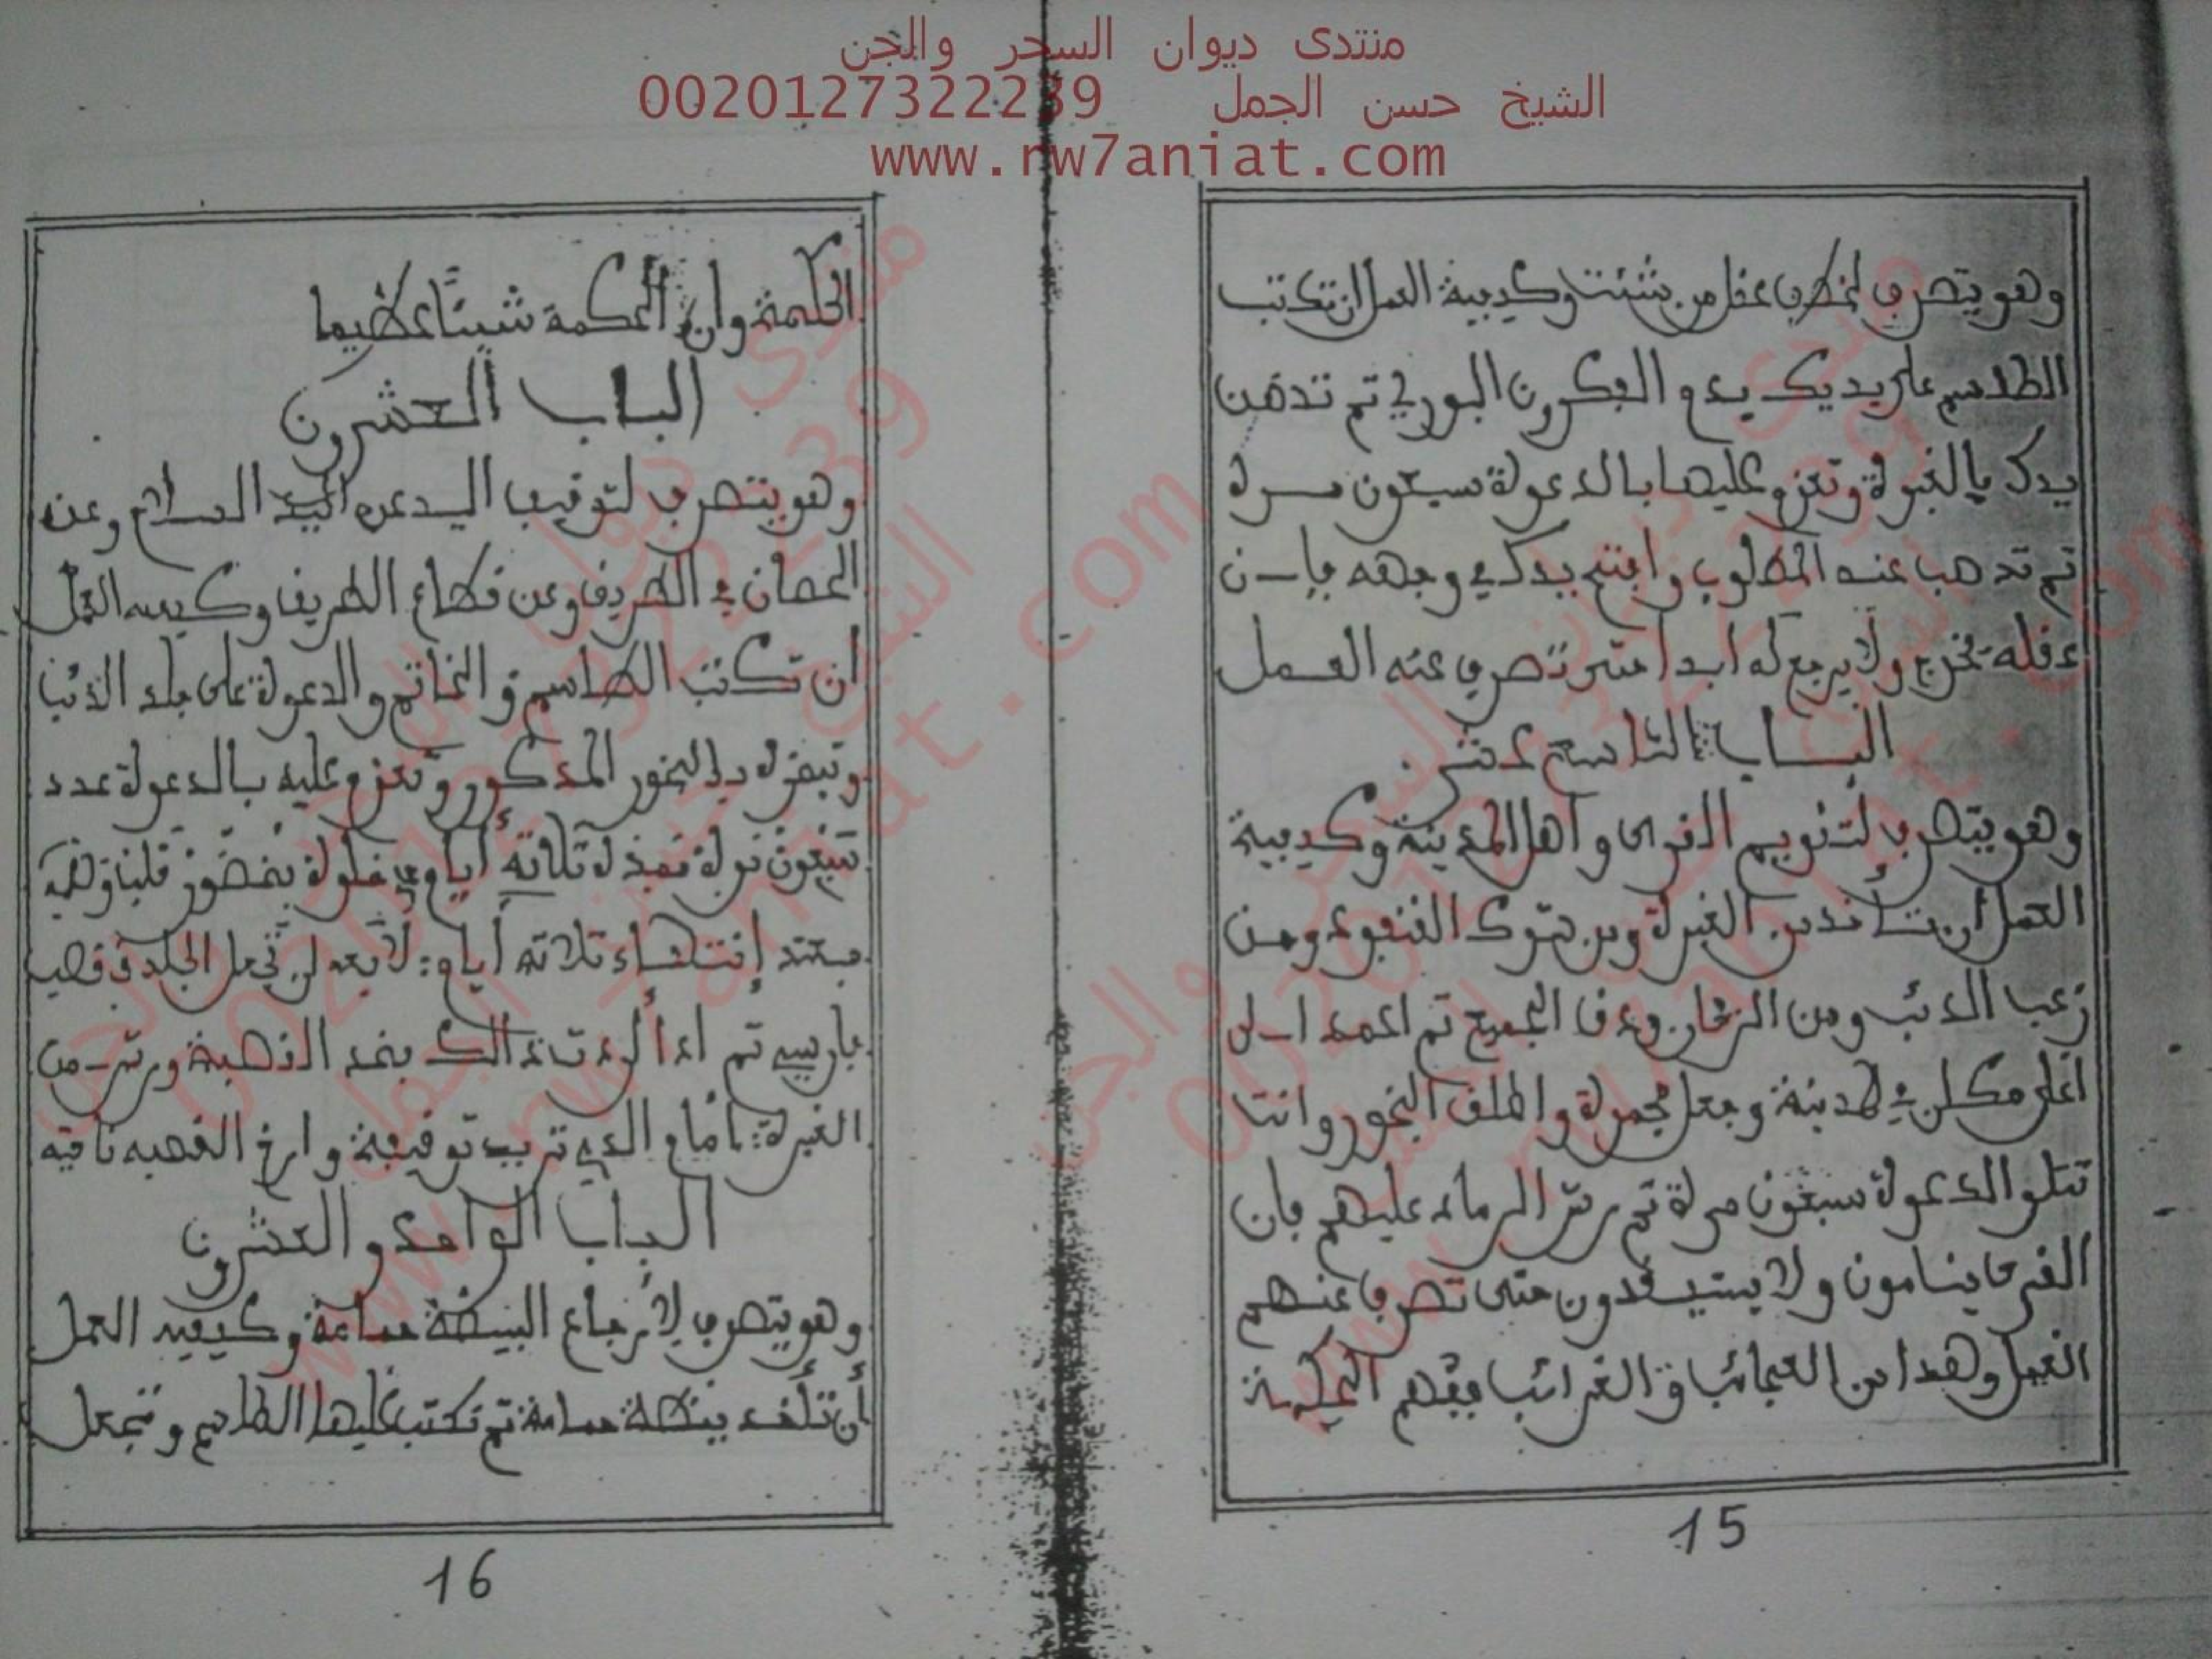 منتدى ديوان السحر والجن
الشيخ حسن الجمل 00201273222239
www.rw7aniat.com
وهو يتصرف لخطف عقل من شئت وكيفية العمل ان تكتب
الطلاسم على يديك بدم الفكرون البوري ثم تدهن
يدك بالغبرة وتعزم عليها بالدعوة سبعون مرة
ثم تدهب عند المطلوب وافتح يدك في وجهه فإن
عقله يخرج ولا يرجع له ابدا حتى تصرف عنه العمل
الباب التاسع عشر
وهو يتصرف لتنويم القرى واهل المدينة وكيفية
العمل ان تاخد من الغبرة ومن شوك القنفود ومن
زغب الدئب ومن الزخار ودق الجميع ثم اعمد الى
اعلى مكان في المدينة وجعل مجمرة واطلق البخور وانتا
تتلو الدعوة سبعون مرة ثم رش الرماد عليهم فان
القرى ينامون ولا يستيقدون حتى تصرف عنهم
العمل وهدا من العجائب والغرائب ففهم الحكمة
15
الحكمة وان الحكمة شيئا عظيما
الباب العشرون
وهو يتصرف لتوقيف اليد عن السلاح وعن
الحصان في الطريق وعن قطاع الطريق وكيفية العمل
ان تكتب الطلاسم والخاتم والدعوة على جلد الدئب
وتبخره بالبخور المدكور وتعزم عليه بالدعوة عدد
سبعون مرة لمدة ثلاثة أيام في خلوة
عند إنتهاء ثلاثة أيام تجعل الجلد في قصبة
فارسي ثم ادا أردت دالك بخد القصبة ورش من
الغبرة أمام الدي تريد توقيفه وارخ القصبة
الباب الواحد والعشرون
وهو يتصرف لأرجاع البيضة حمامة وكيفية العمل
أن تأخد بيضة حمامة ثم تكتب عليها الطلاسم وتجعل
16